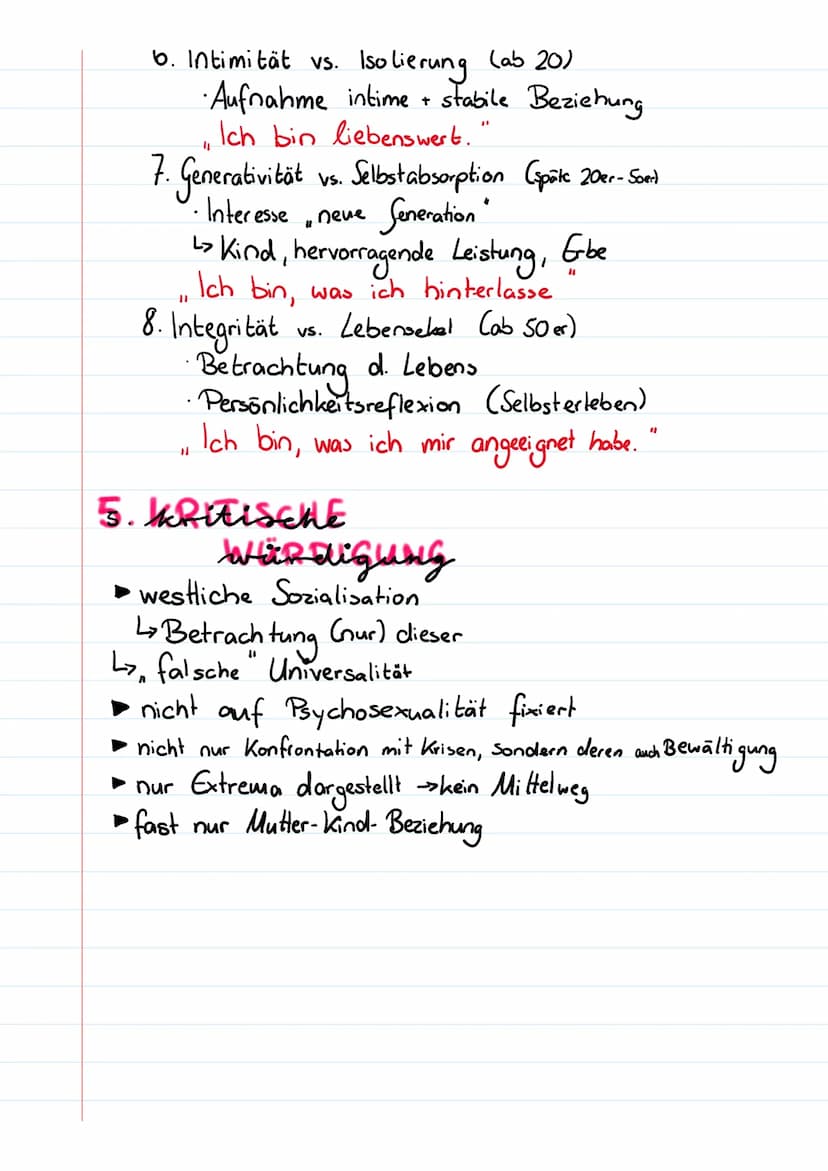 6. Intimität vs. Isolierung (ab 20)
· Aufnahme intime + stabile Beziehung
„Ich bin liebenswert."
7. Generativität vs. Selbstabsorption (späte 20er-50er)
· Interesse „neue Generation"
↳ Kind, hervorragende Leistung, Erbe
„Ich bin, was ich hinterlasse"
8. Integrität vs. Lebensekel (ab 50er)
· Betrachtung d. Lebens
· Persönlichkeitsreflexion (Selbsterleben)
„Ich bin, was ich mir angeeignet habe."
5. KRITISCHE
WÜRDIGUNG
▶ westliche Sozialisation
↳ Betrachtung (nur) dieser
↳ „falsche" Universalität
▶ nicht auf Psychosexualität fixiert
▶ nicht nur Konfrontation mit Krisen, sondern deren auch Bewältigung
▶ nur Extrema dargestellt → kein Mittelweg
▶ fast nur Mutter-Kind-Beziehung